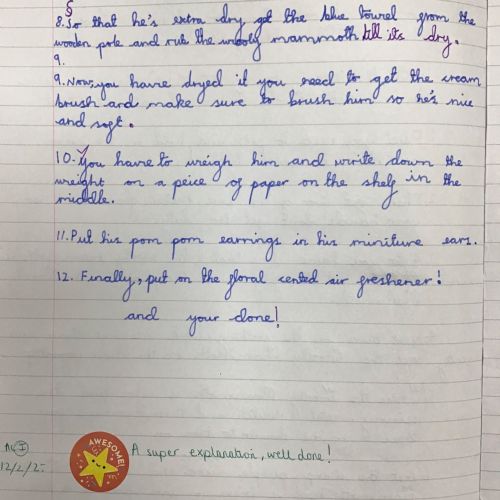 S
8. So that he's extra dry get the blue towel from the
wooden pole and rub the wooly mammoth till its dry.
9.
9. Now, you have dryed it you need to get the cream
brush and make sure to brush him so he's nice
and soft.
10. You have to weigh him and write down the
weight on a peice of paper on the shelf in the
middle.
11. Put his pom pom earrings in his miniture ears.
12. Finally, put on the floral cented air freshener!
and your done!
AWESOME!
A super explanation, well done!
12/2/2